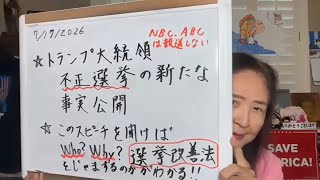 7/17/2026
NBC, ABC
は報道しない
☆トランプ大統領
不正選挙の新たな
事実公開
☆このスピーチを聞けば
Who? Why? 選挙改善法
をじゃまするのかがわかる!!
SAVE
ERICA!